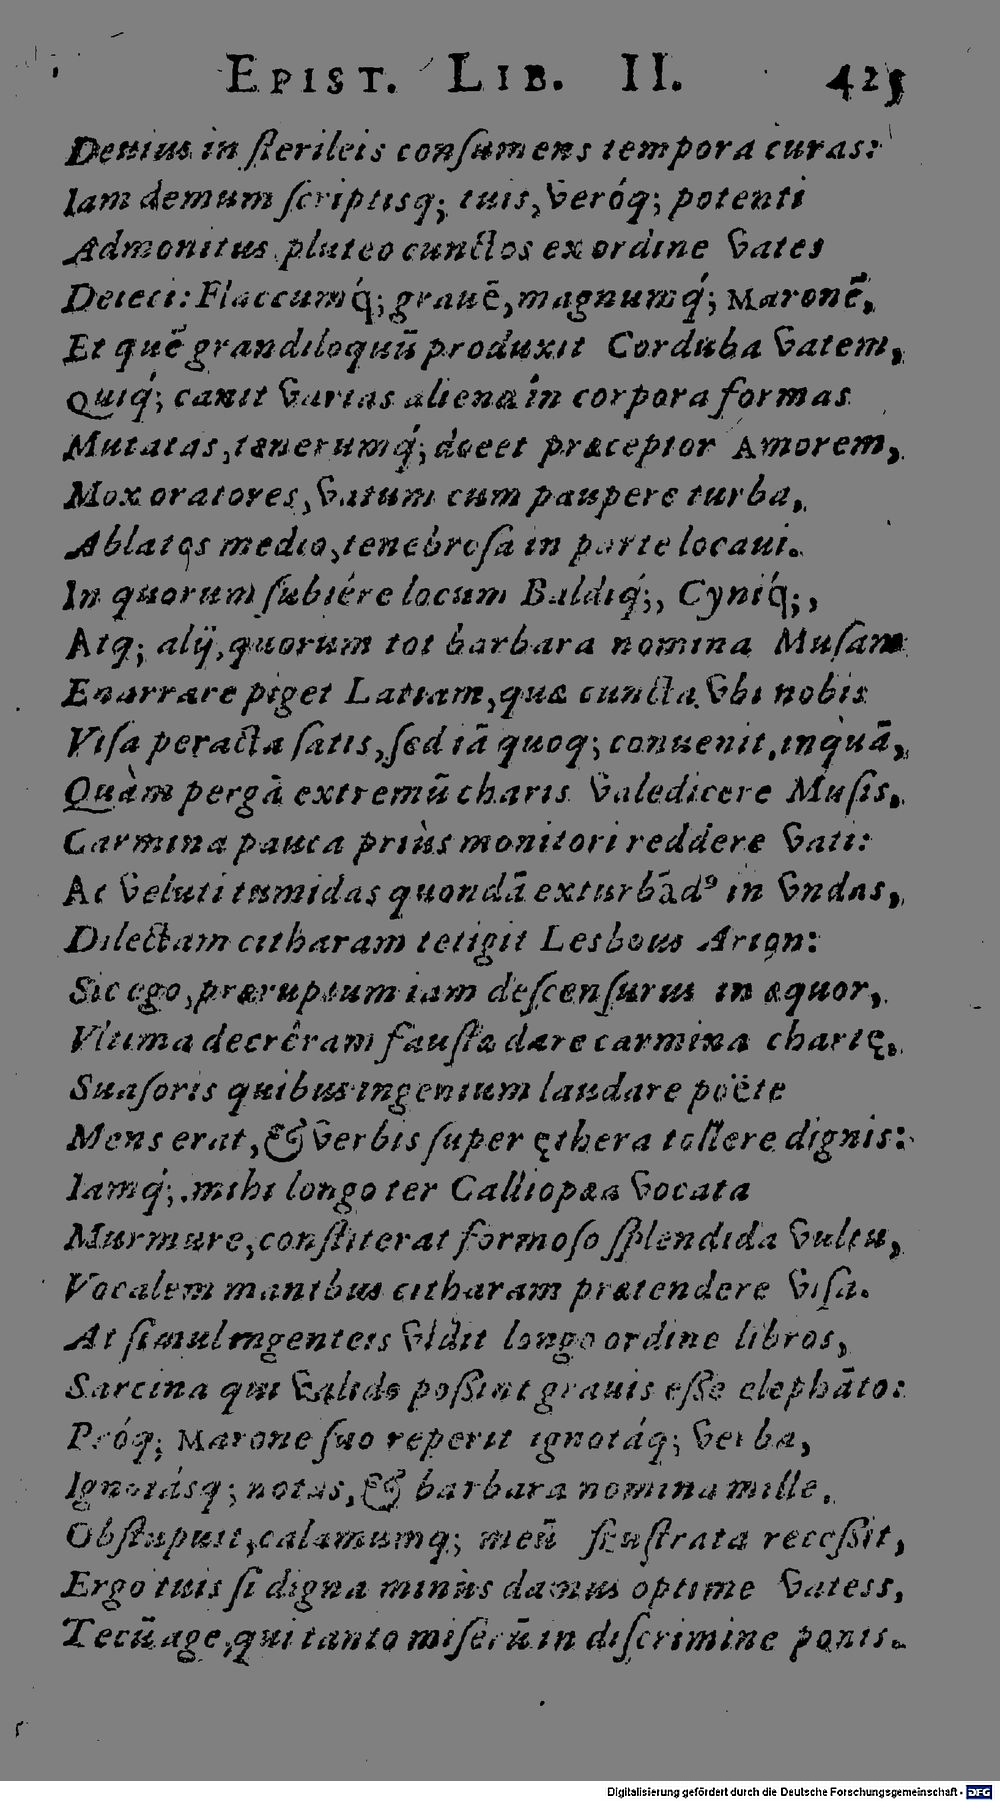 EPIST. LIB. II. 425
Deuius in ſterileis conſumens tempora curas:
Iam demum ſcriptisq; tuis, veróq; potenti
Admonitus pluteo cunctos ex ordine vates
Deieci: Flaccumq́; grauē, magnumq́; Maronē,
Et quē grandiloquū produxit Corduba vatem,
Quiq́; canit varias aliena in corpora formas
Mutatas, tenerumq́; docet præceptor Amorem,
Mox oratores, vatum cum paupere turba,
Ablatos medio, tenebroſa in parte locaui.
In quorum ſubiére locum Baldiq́;, Cyniq́;,
Atq; alij, quorum tot barbara nomina Muſam
Enarrare piget Latiam, quæ cuncta vbi nobis
Viſa peracta ſatis, ſed iā quoq; conuenit, inquā,
Quàm pergā extremū charis valedicere Muſis,
Carmina pauca priùs monitori reddere vati:
Ac veluti tumidas quondā exturbād⁹ in vndas,
Dilectam citharam tetigit Lesbous Arion:
Sic ego, præruptum iam deſcenſurus in æquor,
Vltima decrêram fauſtæ dare carmina chartę,
Suaſoris quibus ingenium laudare poëte
Mens erat, & verbis ſuper ęthera tollere dignis:
Iamq́; mihi longo ter Calliopæa vocata
Murmure, conſtiterat formoſo ſplendida vultu,
Vocalem manibus citharam prætendere viſa.
At ſimul ingenteis vidit longo ordine libros,
Sarcina qui valido poßint grauis eße elephāto:
Próq; Marone ſuo reperit ignotáq; verba,
Ignotásq; notas, & barbara nomina mille.
Obſtupuit, calamumq; meū fruſtrata receßit,
Ergo tuis ſi digna minùs damus optime vatess,
Tecū age, qui tanto miſerū in diſcrimine ponis.
Digitalisierung gefördert durch die Deutsche Forschungsgemeinschaft - DFG